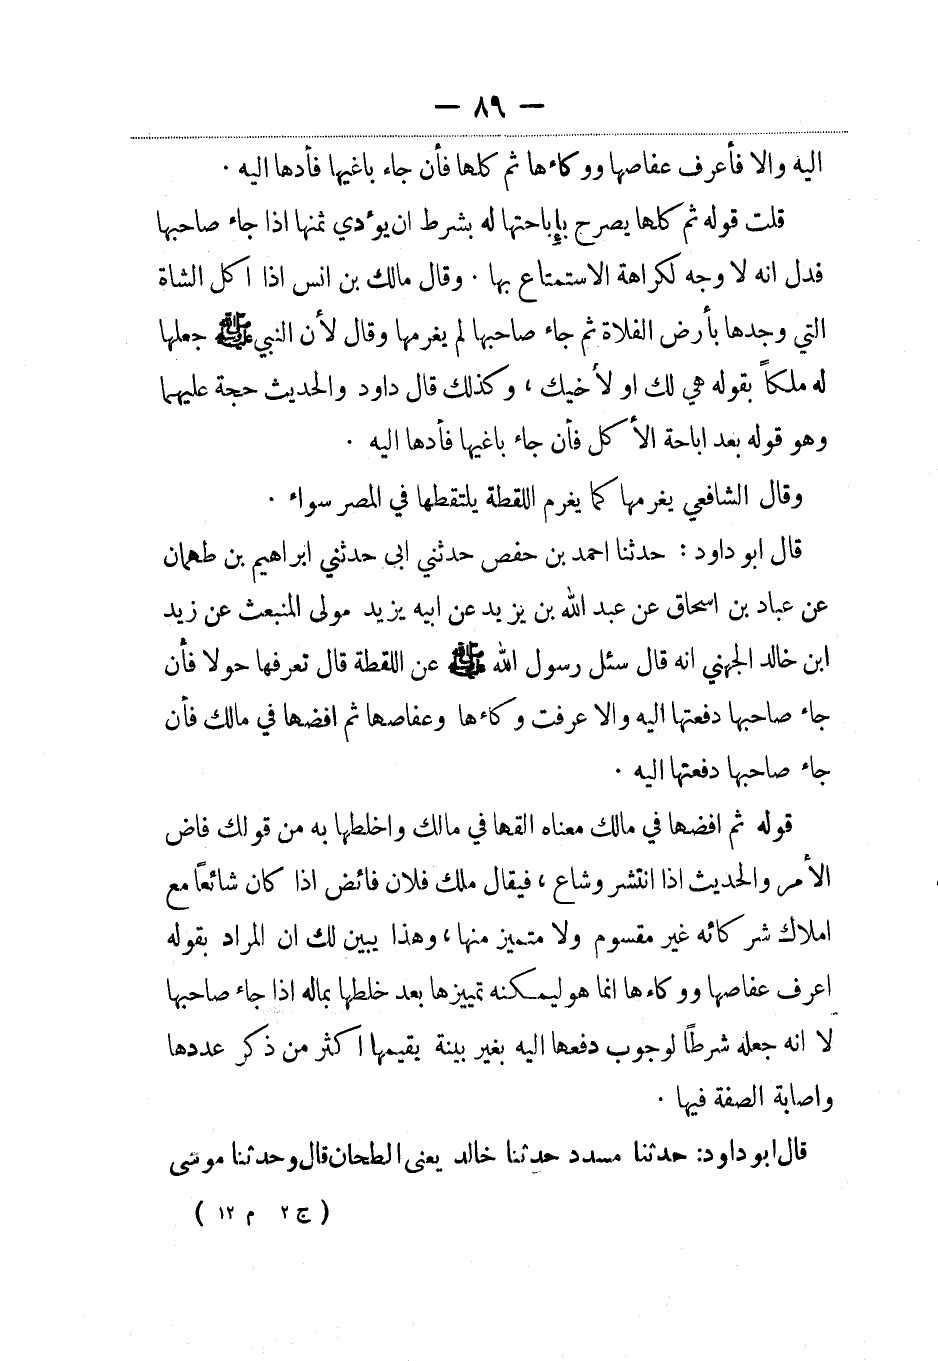 — ٨٩ —
اليه والا فأعرف عفاصها ووكاءها ثم كلها فأن جاء باغيها فأدها اليه ·
قلت قوله ثم كلها يصرح بإباحتها له بشرط ان يؤدي ثمنها اذا جاء صاحبها
فدل انه لا وجه لكراهة الاستمتاع بها · وقال مالك بن انس اذا اكل الشاة
التي وجدها بأرض الفلاة ثم جاء صاحبها لم يغرمها وقال لأن النبي ﷺ جعلها
له ملكاً بقوله هي لك او لأخيك ، وكذلك قال داود والحديث حجة عليهما
وهو قوله بعد اباحة الأكل فأن جاء باغيها فأدها اليه ·
وقال الشافعي يغرمها كما يغرم اللقطة يلتقطها في المصر سواء ·
قال ابو داود : حدثنا احمد بن حفص حدثني ابى حدثني ابراهيم بن طهمان
عن عباد بن اسحاق عن عبد الله بن يزيد عن ابيه يزيد مولى المنبعث عن زيد
ابن خالد الجهني انه قال سئل رسول الله ﷺ عن اللقطة قال تعرفها حولا فأن
جاء صاحبها دفعتها اليه والا عرفت وكاءها وعفاصها ثم افضها في مالك فأن
جاء صاحبها دفعتها اليه ·
قوله ثم افضها في مالك معناه القها في مالك واخلطها به من قولك فاض
الأمر والحديث اذا انتشر وشاع ، فيقال ملك فلان فائض اذا كان شائعاً مع
املاك شركائه غير مقسوم ولا متميز منها ، وهذا يبين لك ان المراد بقوله
اعرف عفاصها ووكاءها انما هو ليمكنه تمييزها بعد خلطها بماله اذا جاء صاحبها
لا انه جعله شرطاً لوجوب دفعها اليه بغير بينة يقيمها اكثر من ذكر عددها
واصابة الصفة فيها ·
قال ابو داود: حدثنا مسدد حدثنا خالد يعنى الطحان قال وحدثنا موسى
( ج ٢ م ١٢ )